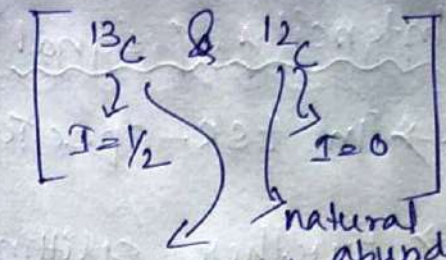 ¹³C & ¹²C
I = 1/2 I = 0
natural
abund